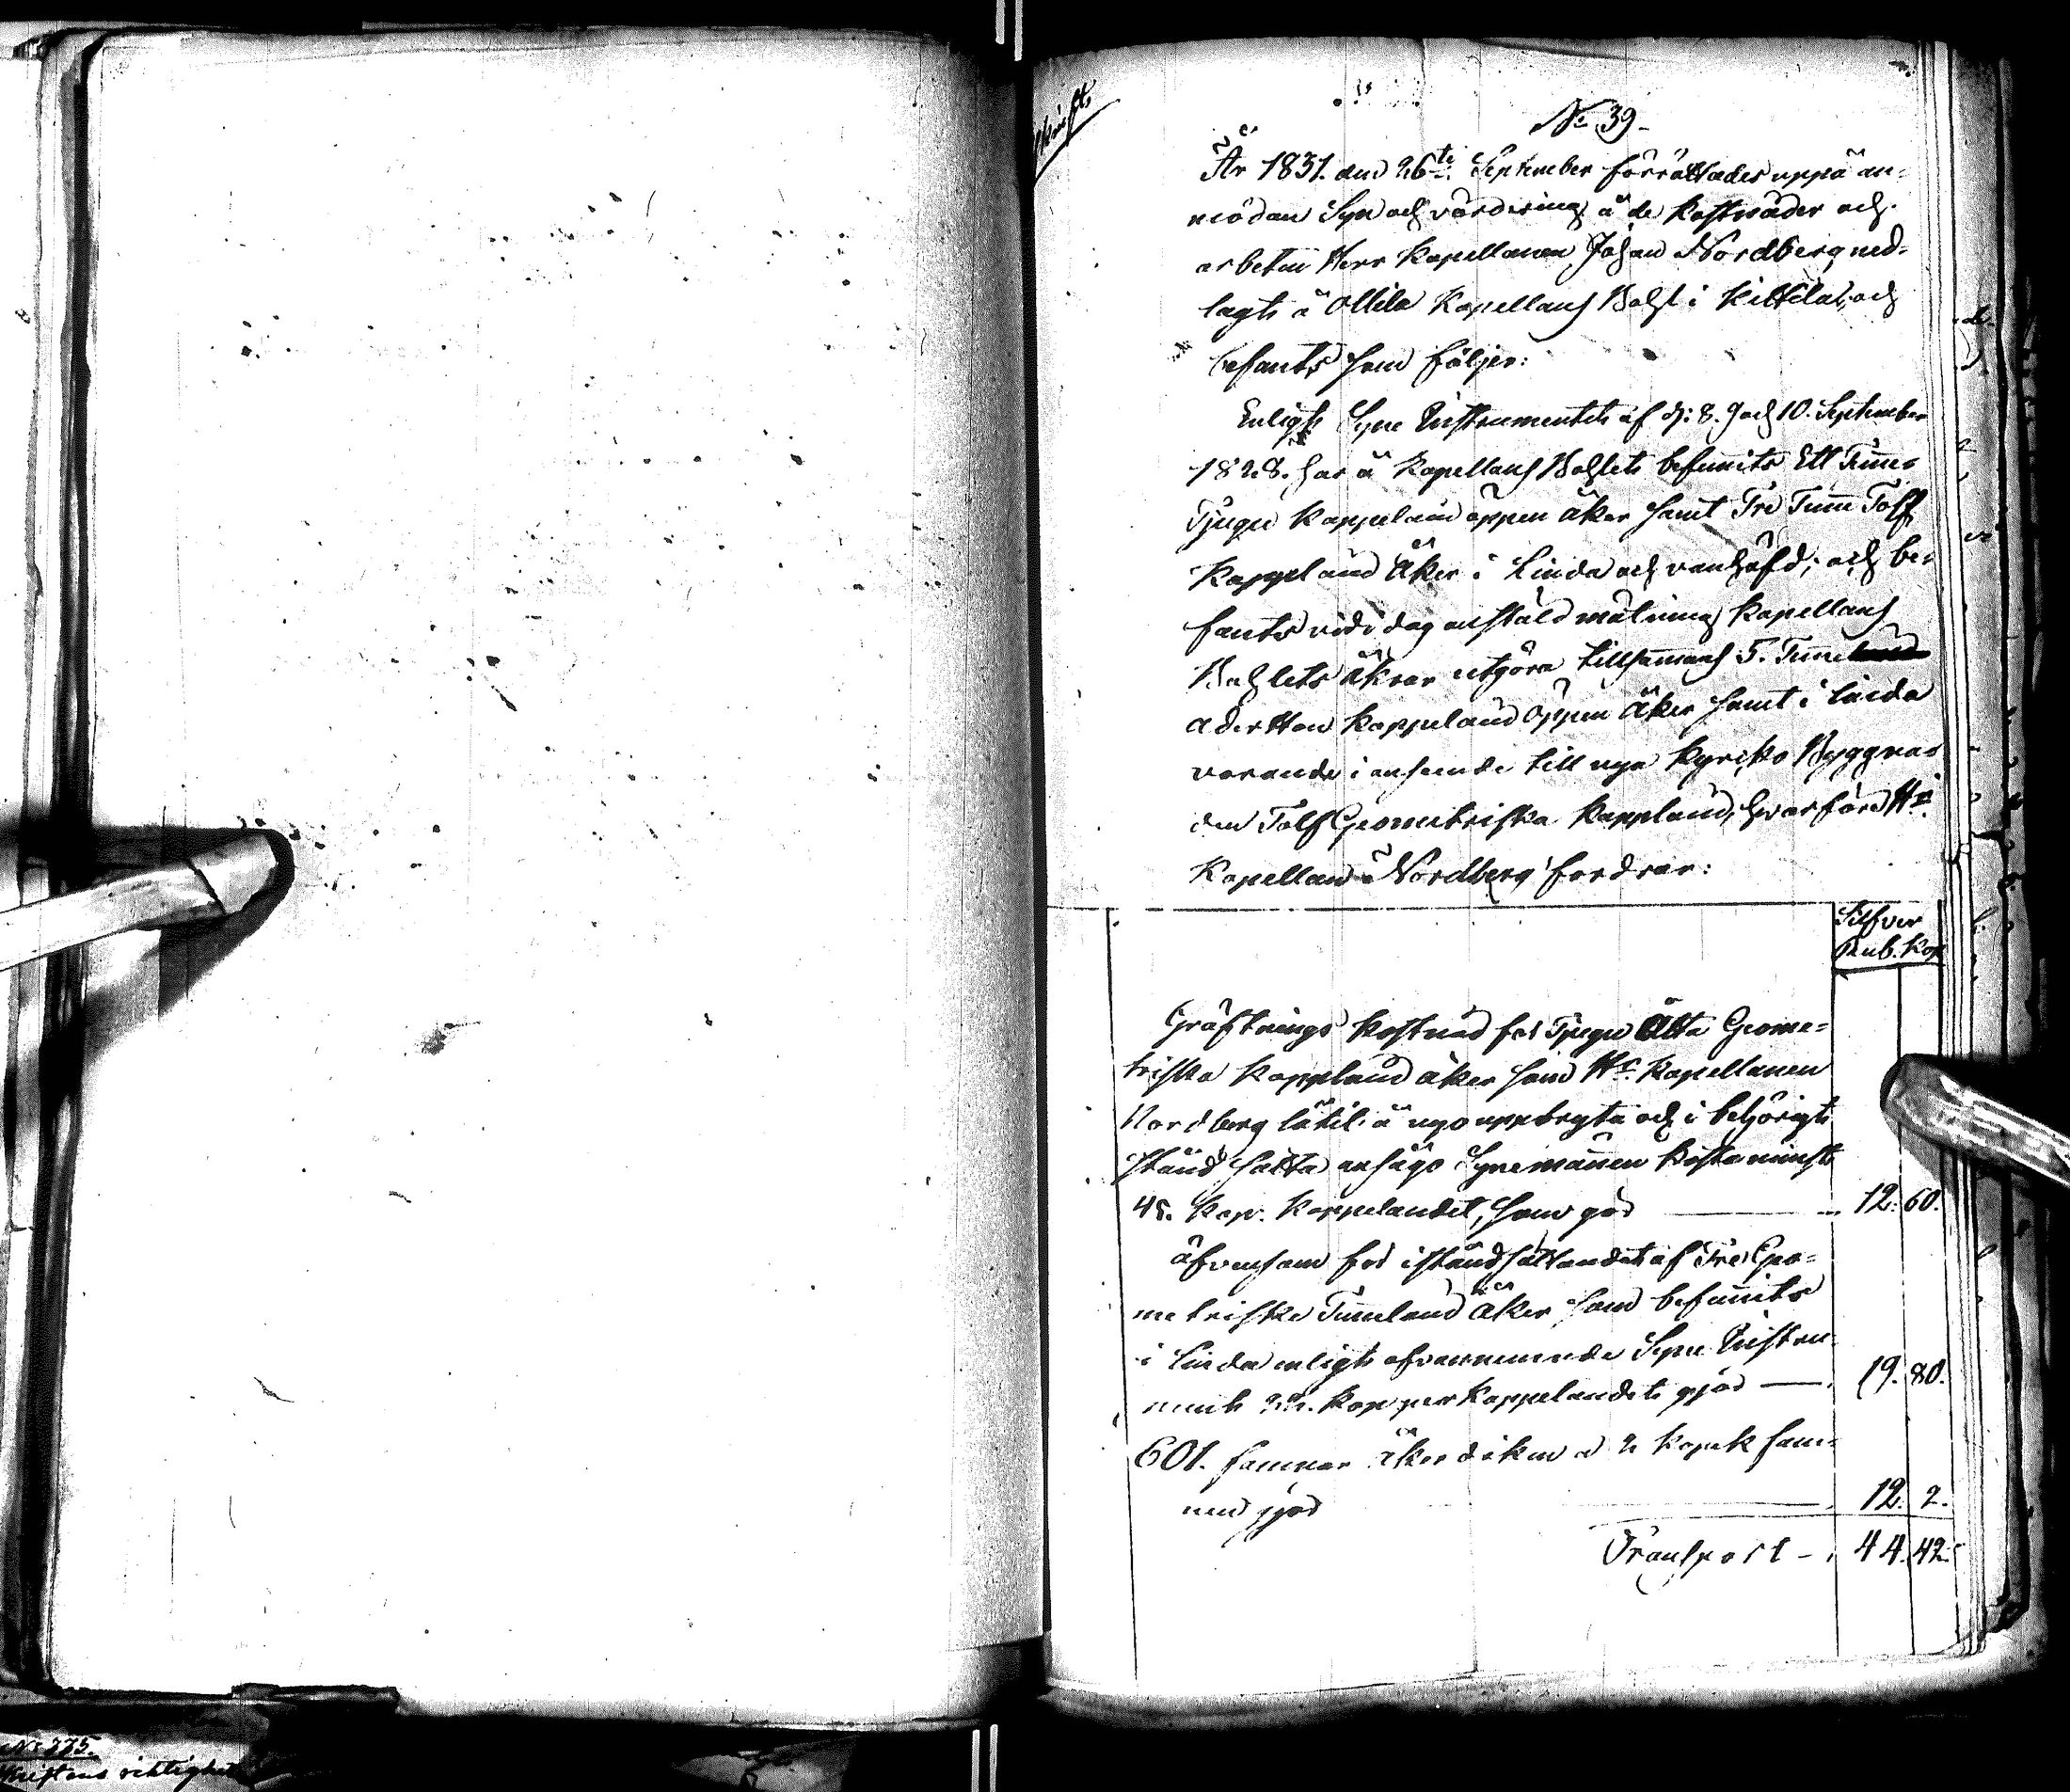 N:o 39.
År 1831. den 26te September förrättades uppå an-
modan Syn och värdering å de kostnader och
arbeten Herr Kapellanen Johan Nordberg ned-
lagt å Ollila Kapellans Bohl i Kittilä, och
befants som följer:
Enligt Syne Instrumentet af d: 8. 9 och 10. September
1828. har å Kapellans Bohlet befunnits Ett Tunn-
Tjugu Kappeland öppen åker samt Tre Tunn Tolf
Kappeland Åker i Linda och vanhäfd; och be-
fants vid i dag anstäld mätning Kapellans
Bohlets åkrar utgöra tillsammans 5. Tunne
adertton Kappeland öppen åker samt i linda
varande i anseende till nya Kyrcko Byggna-
den Tolf Geometriska Kappland, hvarföre Hr
Kapellan Nordberg fordrar:
Silfver
Rub. Kop
Gräftnings kostnad för Tjugu Åtta Geome-
triska Kappland åker som Hr. Kapellanen
Nordberg låtit å nyo uppbryta och i behörigt
stånd sätta ansågo Synemännen kosta minst
45. Kop. Kappelandet, som gör 12. 60.
äfvensom för iståndsättandet af Tre Geo-
metriske Tunneland Åker som befunnits
i Linda enligt ofvannämnde Syne Instru-
ment 22. Kop per Kappelandet gjör 19. 80.
601. famnar åkerdiken a 2 kopek fam-
nen gjör 12. 2.
Transport 44. 42.
No 335.
riktighet